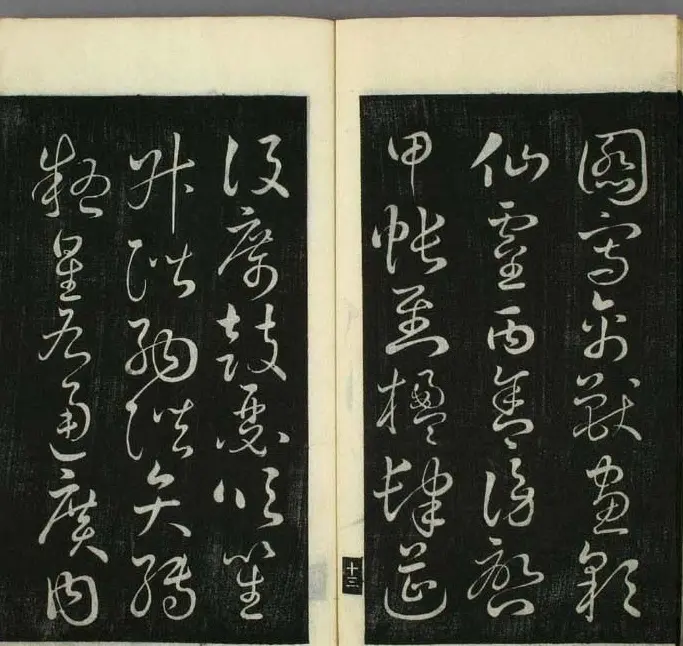 圖寫禽獸畫彩
仙靈丙舍傍啓
甲帳對楹肆筵
十三
設席鼓瑟吹笙
升階納陛弁轉
疑星右通廣內